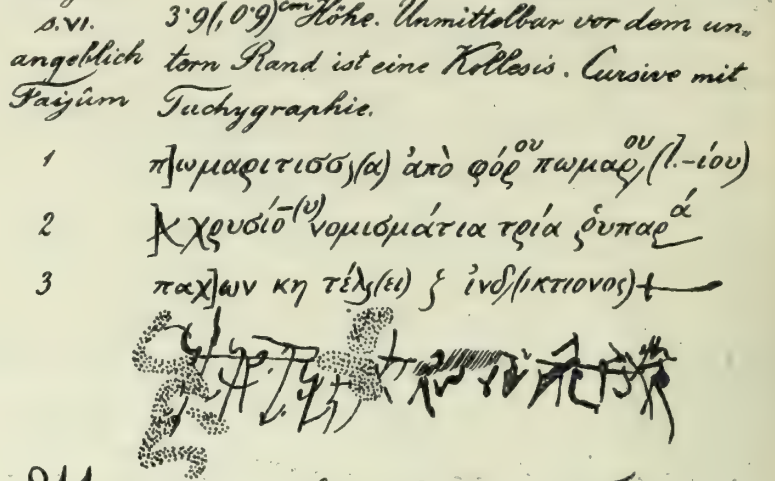 s.VI. 3·9(, 0·9)cm Höhe. Unmittelbar vor dem un„
angeblich tern Rand ist eine Kollesis. Cursive mit
Faijûm Tachygraphie.
1 π]ωμαριτισσ(α) ἀπὸ φόρου πωμαρου (l. -ίου)
2 χρυσίο(υ) νομισμάτια τρία ῥυπαρά
3 παχ]ων κη τέλ(ει) ξ ἰνδ(ικτιονος)